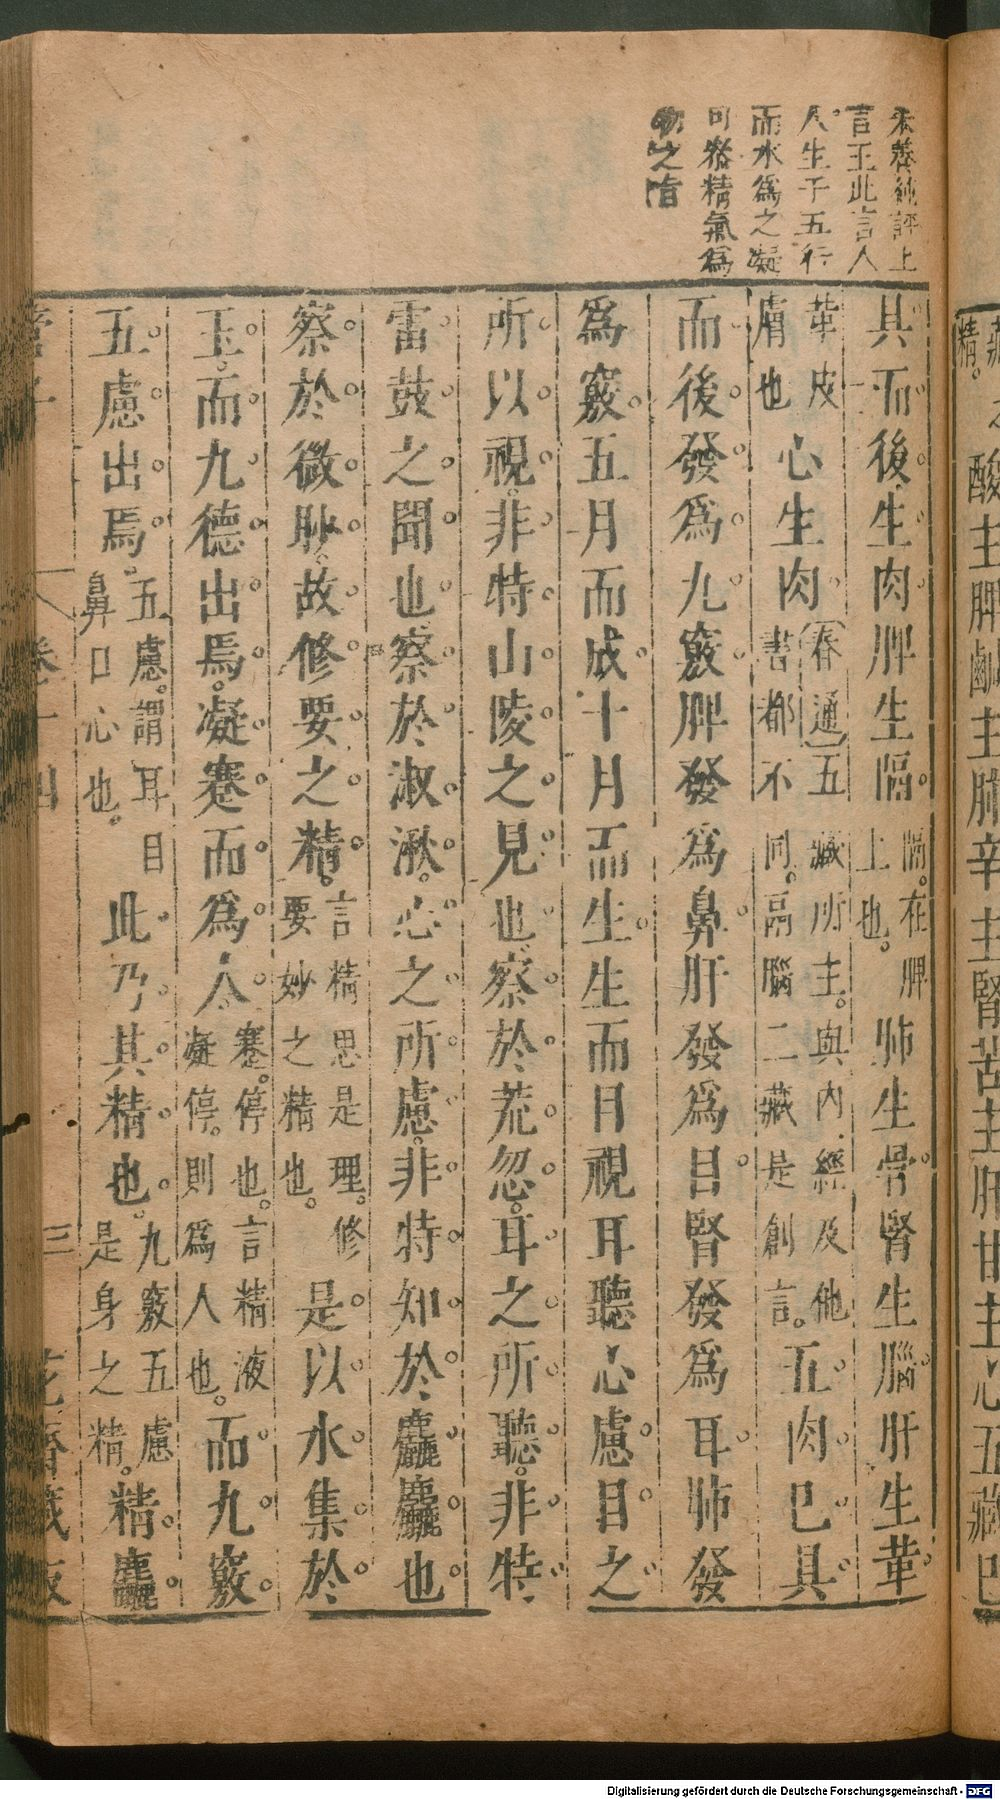 朱養純評上
言玉此言人
人生于五行
而水爲之凝
可察精氣爲
物之旨
藏之
精。酸主脾鹹主肺辛主腎苦主肝甘主心五藏已
具而後生肉脾生隔隔在脾上也。肺生骨腎生腦肝生革
革皮膚也心生肉春通五藏所主。與內經及他書都不同。隔腦二藏是創言。五肉已具
而後發爲九竅脾發爲鼻肝發爲目腎發爲耳肺發
爲竅五月而成十月而生生而目視耳聽心慮目之
所以視。非特山陵之見也察於荒忽。耳之所聽。非特
雷鼓之聞也察於淑湫。心之所慮。非特知於麤麤也
察於微眇。故修要之精。言精思是理。修要妙之精也。是以水集於
玉。而九德出焉。凝蹇而爲人蹇。停也。言精液凝停。則爲人也。而九竅
五慮出焉。五慮。謂耳目鼻口心也。此乃其精也。九竅五慮是身之精。精麤
管子
卷十四
三
花齋藏板
Digitalisierung gefördert durch die Deutsche Forschungsgemeinschaft - DFG